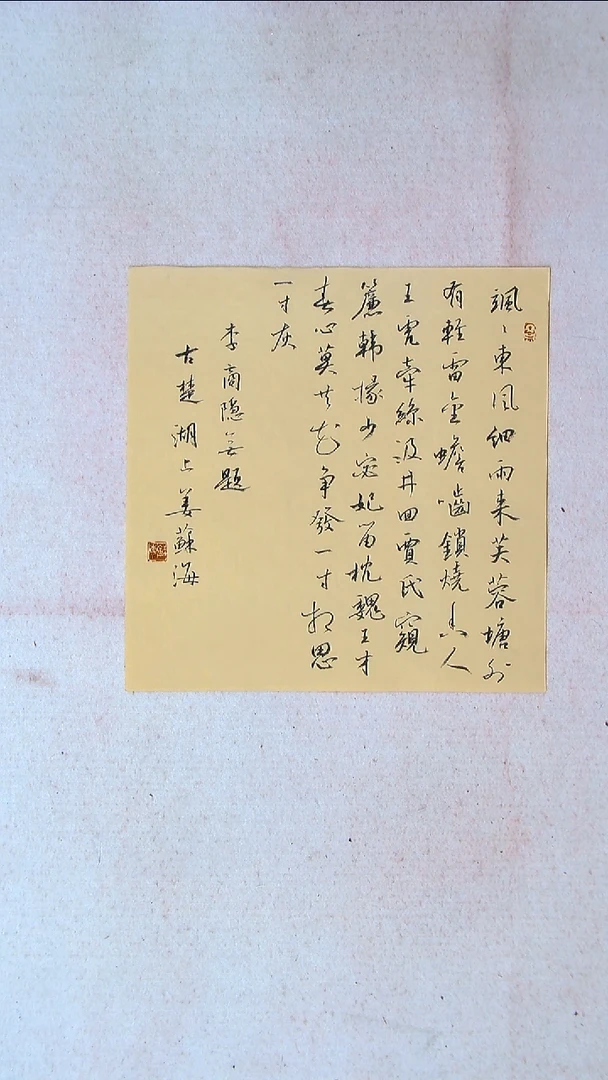 飒〻東風細雨来芙蓉塘外
有軽雷金蟾囓鎖燒香入
玉虎牽絲汲井回賈氏窺
簾韩掾少宓妃留枕魏王才
春心莫共花争發一寸相思
一寸灰
李商隐無題
古楚湖上姜蘇海